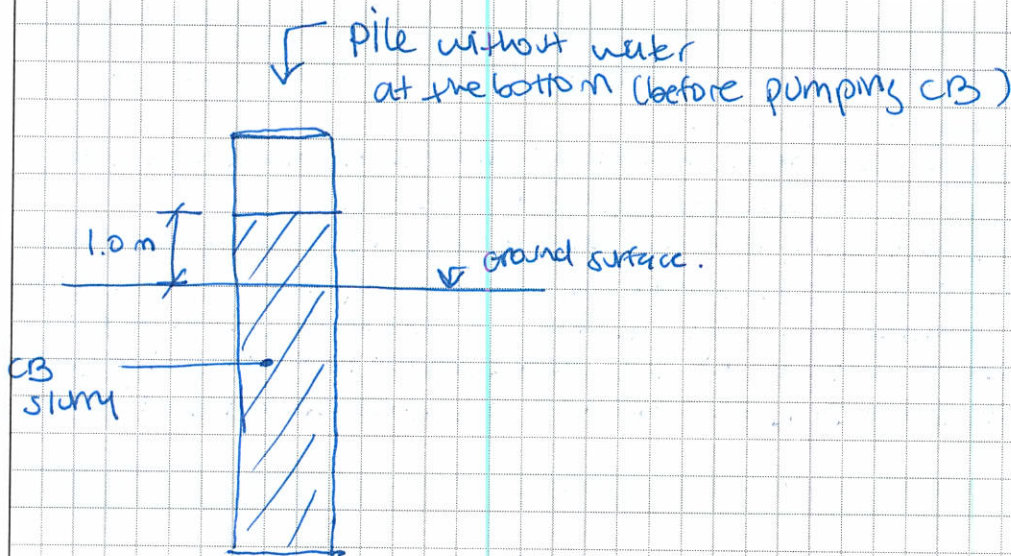 pile without water
at the bottom (before pumping CB)
1.0 m
Ground surface.
CB
slurry